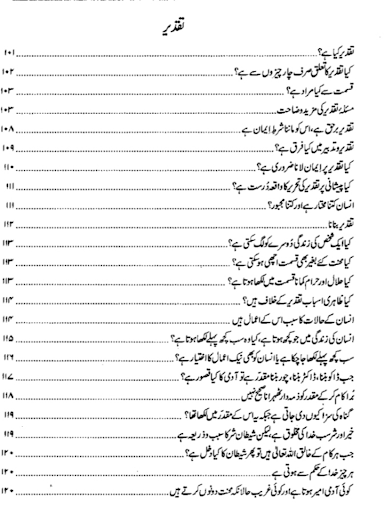 تقدیر
تقدیر کیا ہے؟ ۱۰۱
کیا تقدیر کا تعلق صرف چار چیزوں سے ہے؟ ۱۰۲
قسمت سے کیا مراد ہے؟ ۱۰۳
مسئلۂ تقدیر کی مزید وضاحت ۱۰۳
تقدیر برحق ہے، اس کو ماننا شرطِ ایمان ہے ۱۰۸
تقدیر و تدبیر میں کیا فرق ہے؟ ۱۰۹
کیا تقدیر پر ایمان لانا ضروری ہے؟ ۱۱۰
کیا پیشانی پر تقدیر کی تحریر کا واقعہ دُرست ہے؟ ۱۱۱
انسان کتنا مختار ہے اور کتنا مجبور؟ ۱۱۱
تقدیر بنانا ۱۱۲
کیا ایک شخص کی زندگی دُوسرے کو لگ سکتی ہے؟ ۱۱۳
کیا محنت کئے بغیر بھی قسمت اچھی ہو سکتی ہے؟ ۱۱۳
کیا حلال اور حرام کمانا قسمت میں لکھا ہوتا ہے؟ ۱۱۳
کیا ظاہری اسباب تقدیر کے خلاف ہیں؟ ۱۱۴
انسان کے حالات کا سبب اس کے اعمال ہیں ۱۱۴
انسان کی زندگی میں جو کچھ ہوتا ہے، کیا وہ سب کچھ پہلے لکھا ہوتا ہے؟ ۱۱۵
سب کچھ پہلے لکھا جاچکا ہے یا انسان کو بھی نیک اعمال کا اختیار ہے؟ ۱۱۶
جب ڈاکو بننا، ڈاکٹر بننا، چور بننا مقدر ہے تو آدمی کا کیا قصور ہے؟ ۱۱۷
بُرا کام کرکے مقدر کو ذمہ دار ٹھہرانا صحیح نہیں ۱۱۸
گناہ کی سزا کیوں دی جاتی ہے جبکہ یہ اس کے مقدر میں لکھا تھا؟ ۱۱۹
خیر اور شر سب خدا کی مخلوق ہے، لیکن شیطان شر کا سبب و ذریعہ ہے ۱۱۹
جب ہر کام کے خالق اللہ تعالیٰ ہیں تو پھر شیطان کا کیا دخل ہے؟ ۱۲۰
ہر چیز خدا کے حکم سے ہوتی ہے ۱۲۰
کوئی آدمی امیر ہوتا ہے اور کوئی غریب حالانکہ محنت دونوں کرتے ہیں ۱۲۰